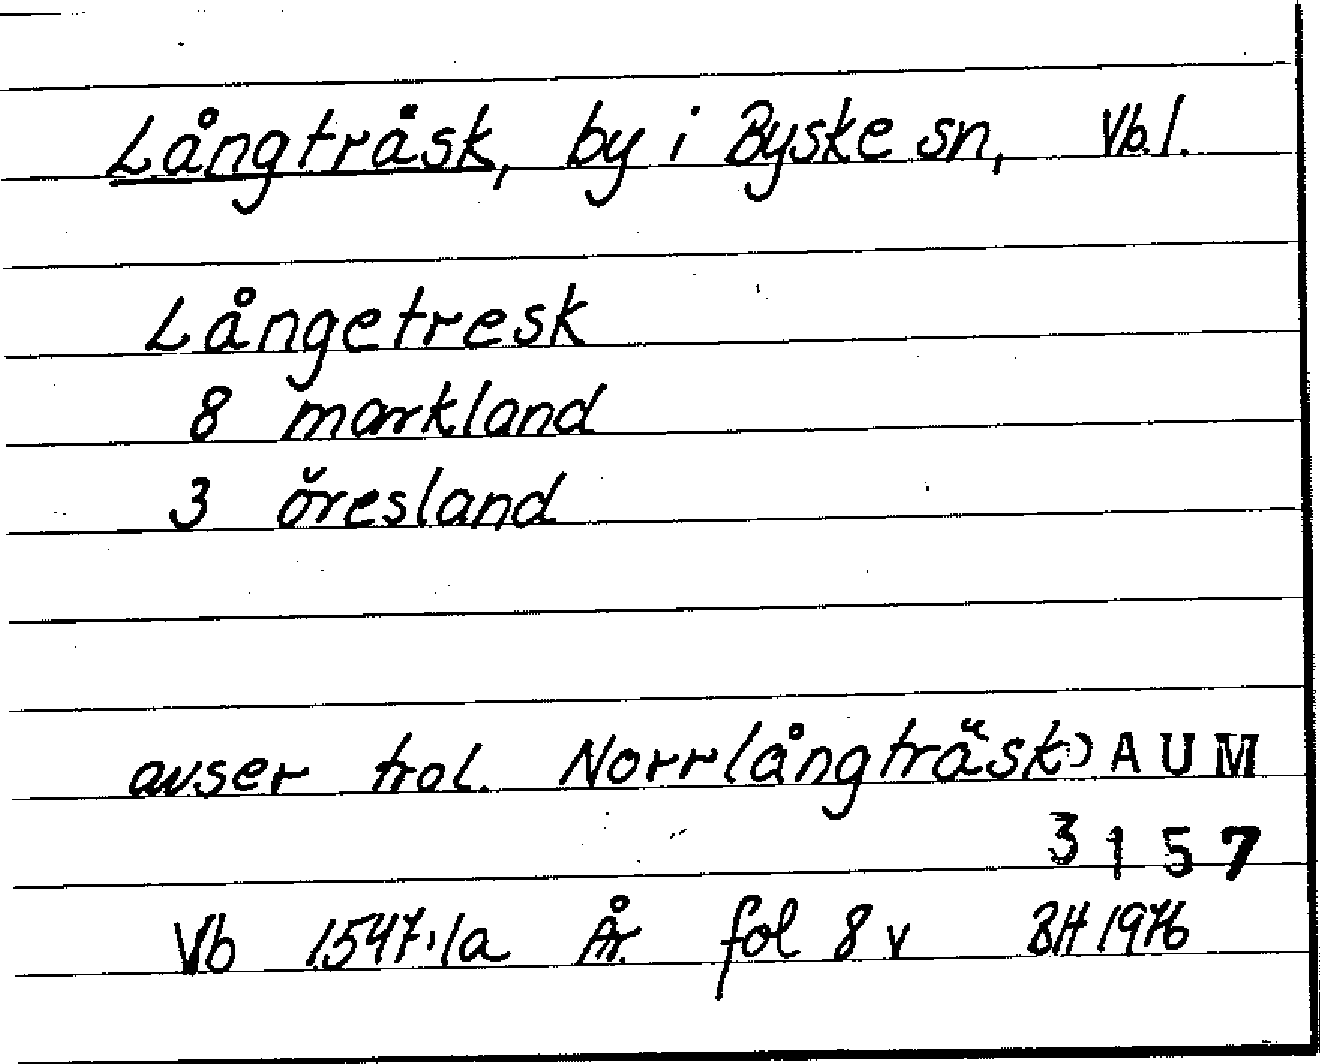 Långträsk, by i Byske sn, Vb.l.
Långetresk
8 markland
3 öresland
avser trol. Norrlångträsk DAUM
3157
Vb 1547:1a År. fol 8 v BH 1976